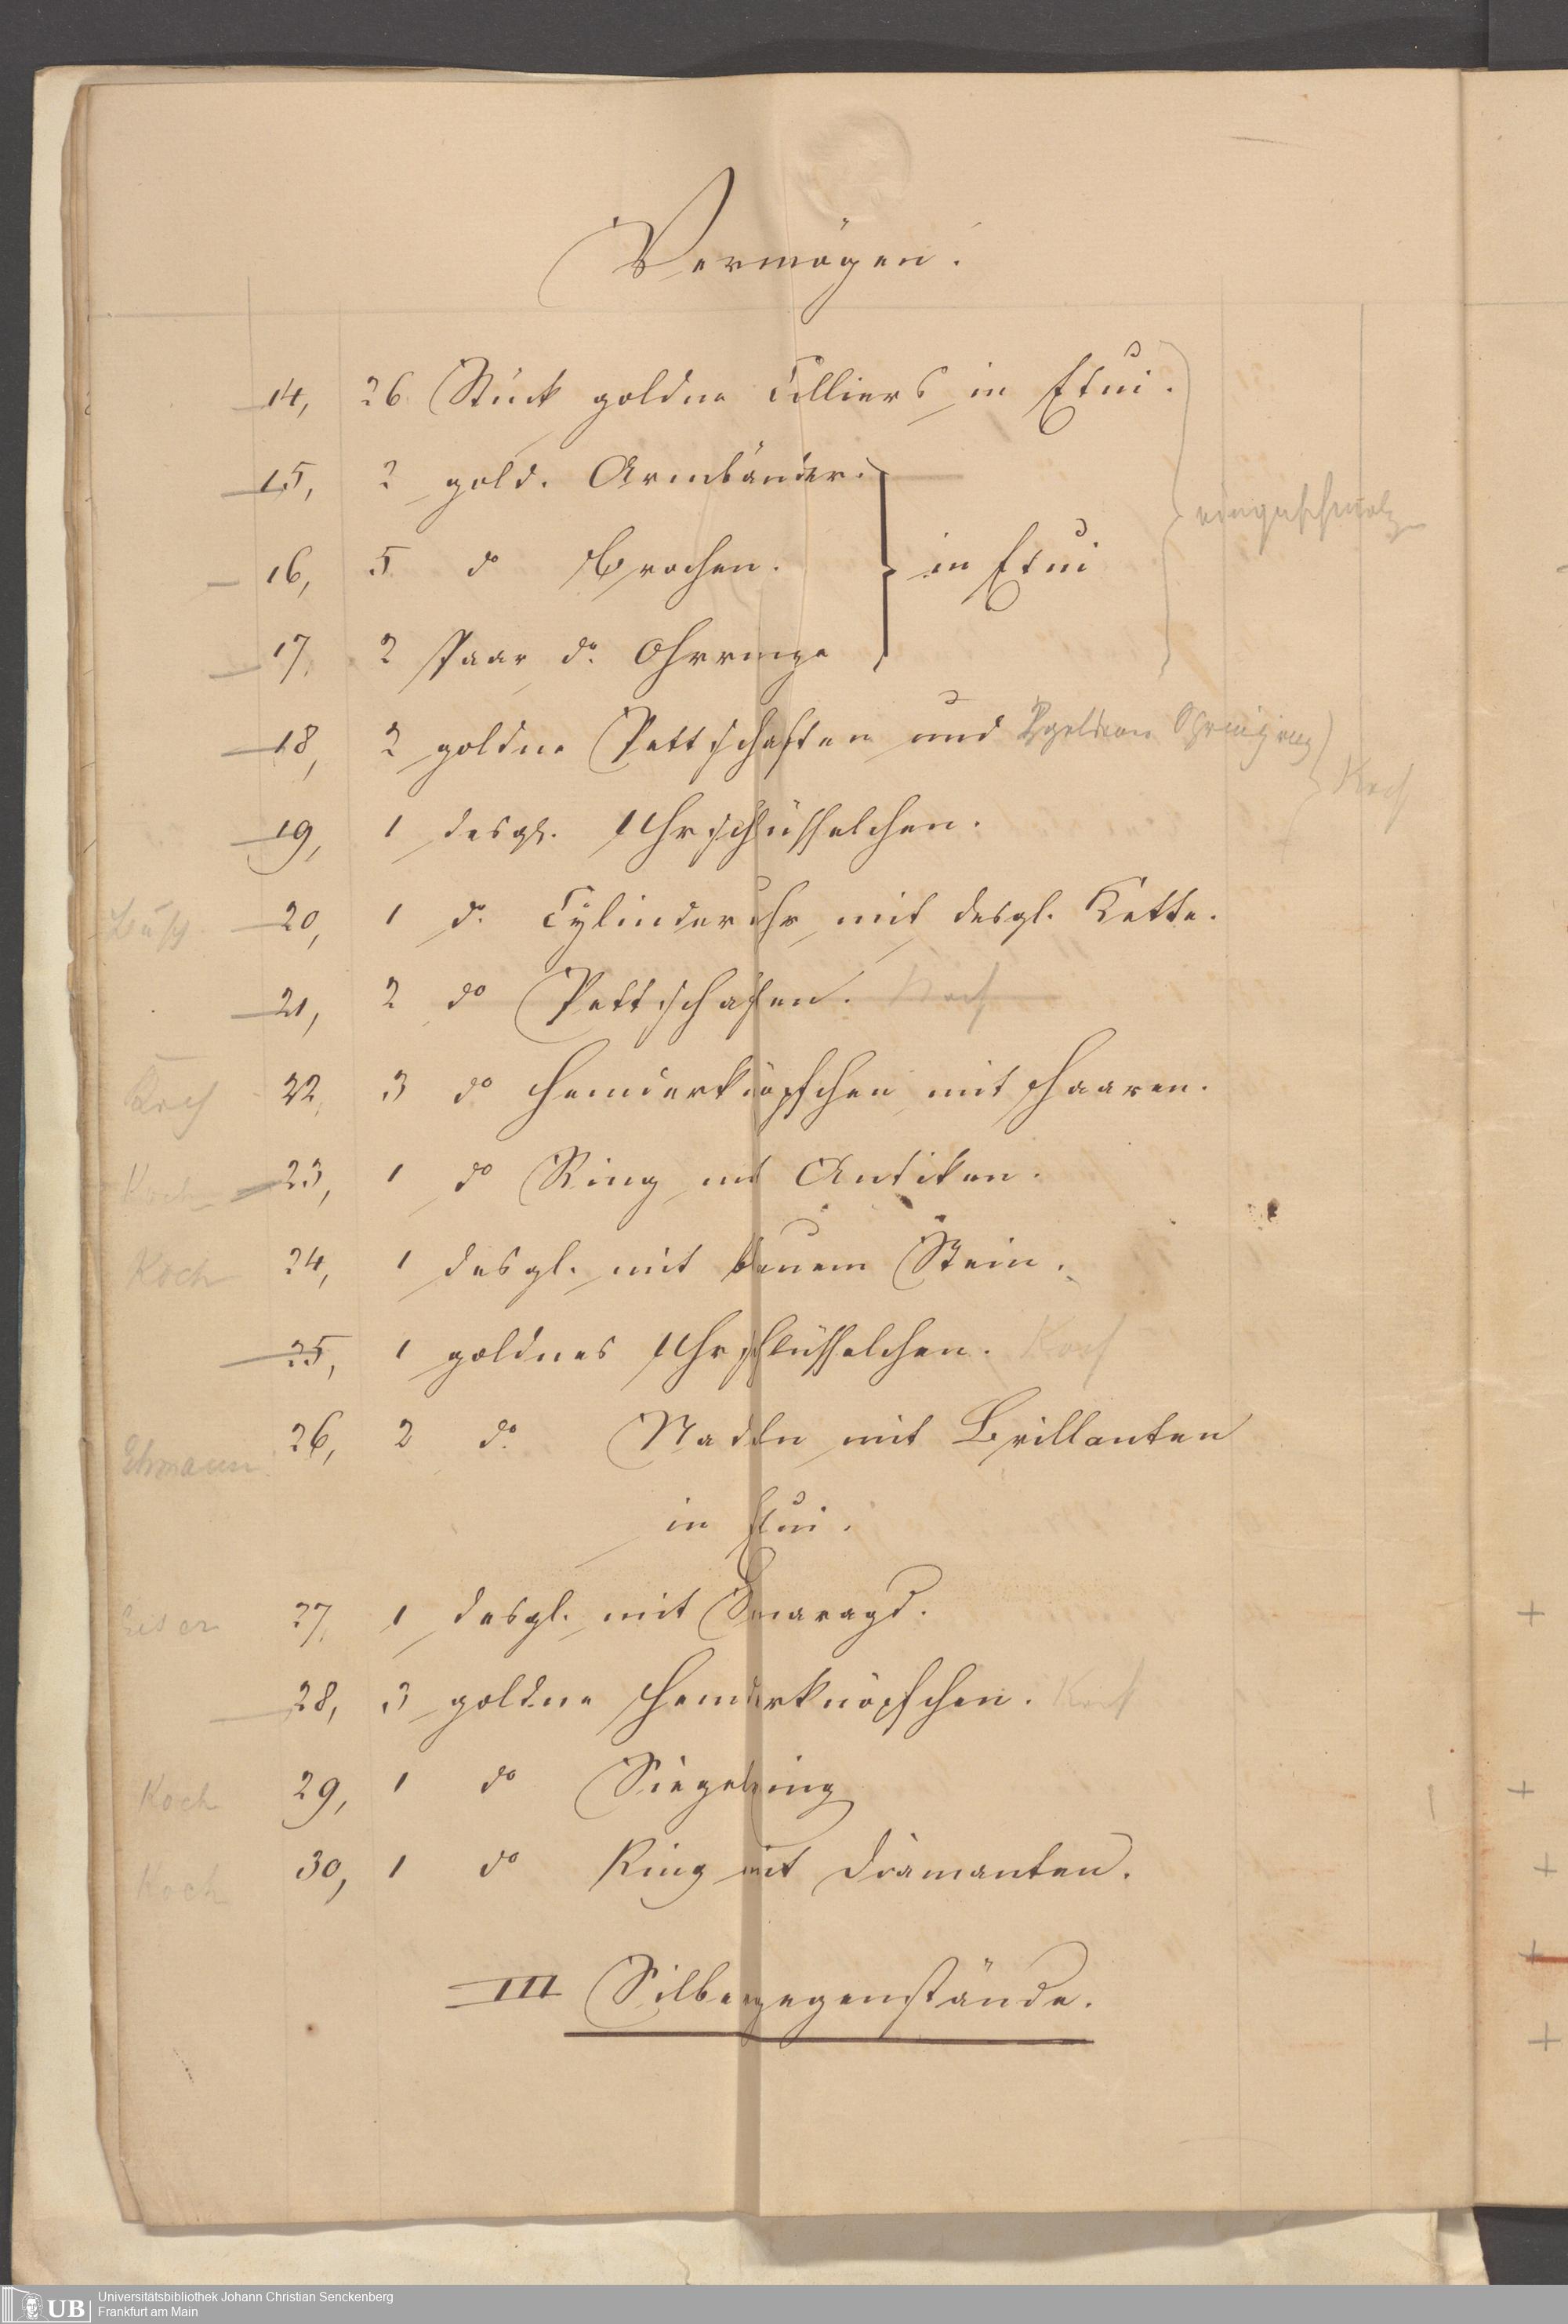 Vermögen.
14, 26 Stück goldne Colliers in Etui.
15, 2 gold. Armbänder.
16, 5 do Brochen. in Etui
eingeschmolz
17, 2 Paar do. Ohrringe
18, 2 goldne Pettschaften und
Koch
19, 1 desgl. Uhrschlüsselchen.
20, 1 do. Cylinderuhr mit desgl. Kette.
21, 2 do Pettschafen. Koch
Koch 22, 3 do Hemderknöpfchen mit Haaren.
Koch 23, 1 do Ring mit Antiken.
Koch 24, 1 desgl. mit blauem Stein.
25, 1 goldnes Uhrschlüsselchen. Koch
Ehmann 26, 2 do. Nadeln mit Brillanten
in Etui.
27, 1 desgl. mit Smaragd.
28, 3 goldne Hemderknöpfchen. Koch
Koch 29, 1 do Siegelring
Koch 30, 1 do Ring mit Diamanten.
III Silbergegenstände.
UB Universitätsbibliothek Johann Christian Senckenberg
Frankfurt am Main